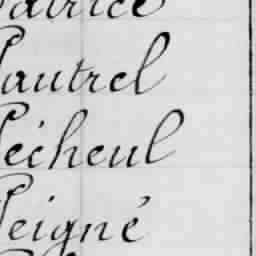 Patrice
Pautrel
Pécheul
Peigné